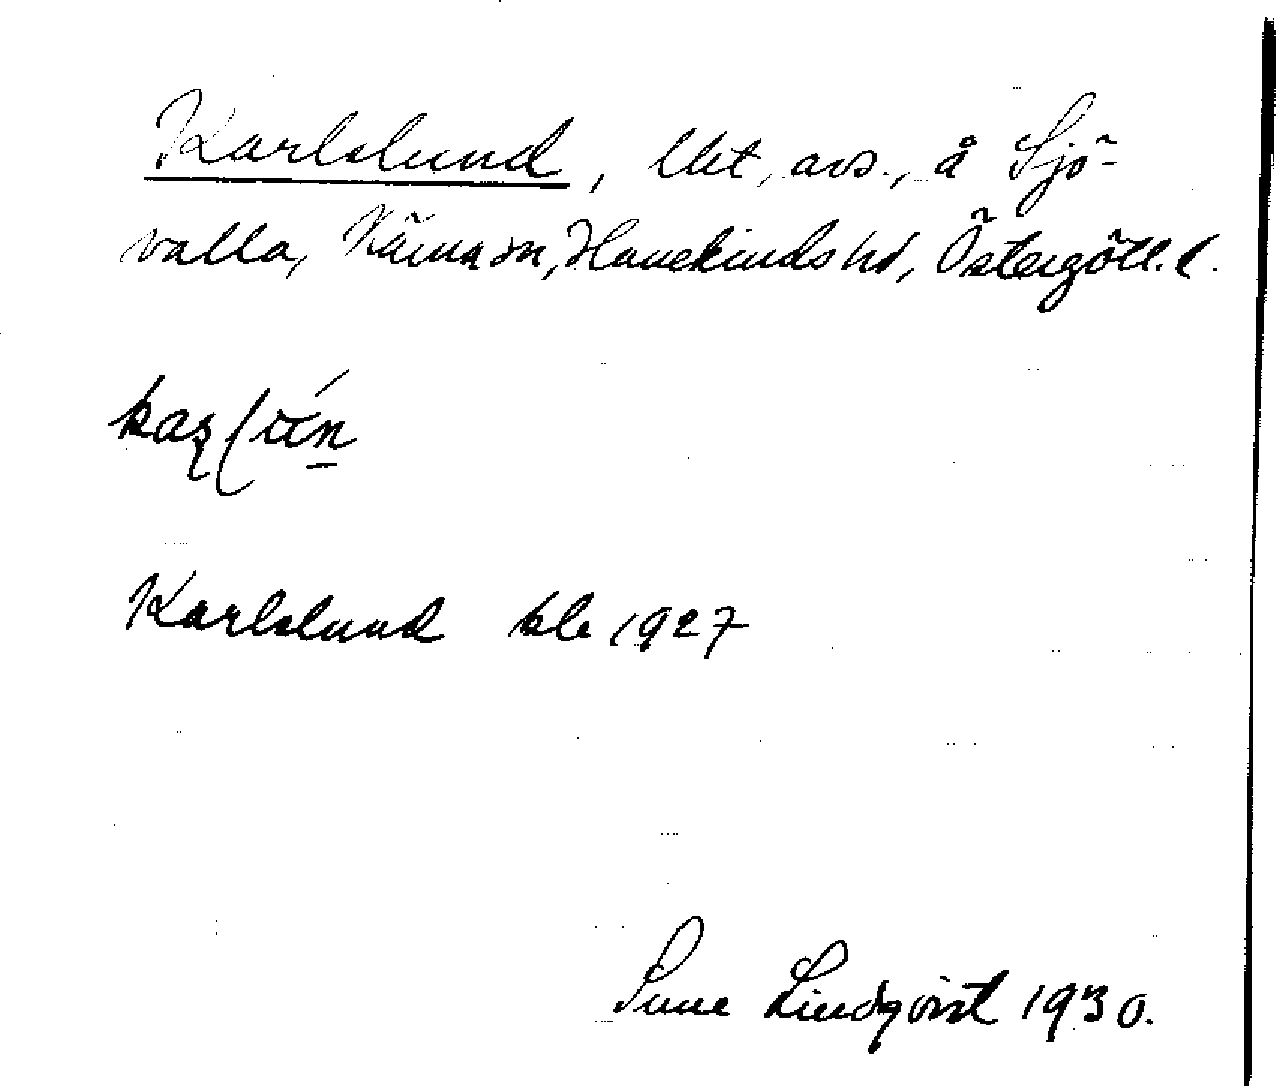 Karlslund, lht, avs., å Sjö-
valla, Kärna sn, Hanekinds hd, Östergötl. l.
Karlslund ble 1927
Sune Lindqvist 1930.